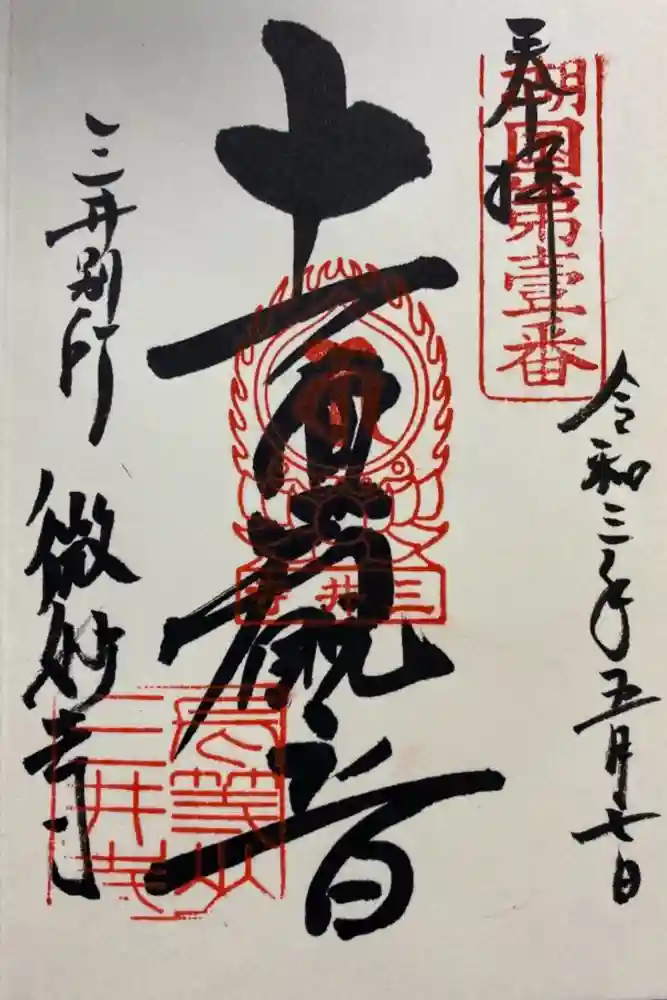 奉拝
湖國第壹番
令和三年五月七日
十一面観音
三井寺
長等山
三井寺
三井別所
微妙寺